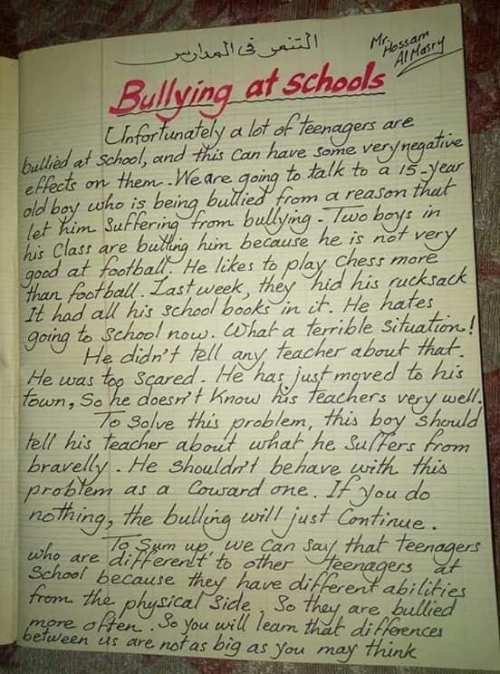 التنمر فى المدارس
Mr. Hossam
Al Masry
Bullying at schools
Unfortunately a lot of teenagers are
bullied at school, and this can have some very negative
effects on them. We are going to talk to a 15-year
old boy who is being bullied from a reason that
let him suffering from bullying. Two boys in
his class are bulling him because he is not very
good at football. He likes to play chess more
than football. Last week, they hid his rucksack
It had all his school books in it. He hates
going to school now. What a terrible situation!
He didn't tell any teacher about that.
He was too scared. He has just moved to his
town, So he doesn't know his teachers very well.
To solve this problem, this boy should
tell his teacher about what he suffers from
bravelly. He shouldn't behave with this
problem as a coward one. If you do
nothing, the bulling will just continue.
To sum up, we can say that teenagers
who are different to other teenagers at
school because they have different abilities
from the physical side. So they are bullied
more often. So you will learn that differences
between us are not as big as you may think